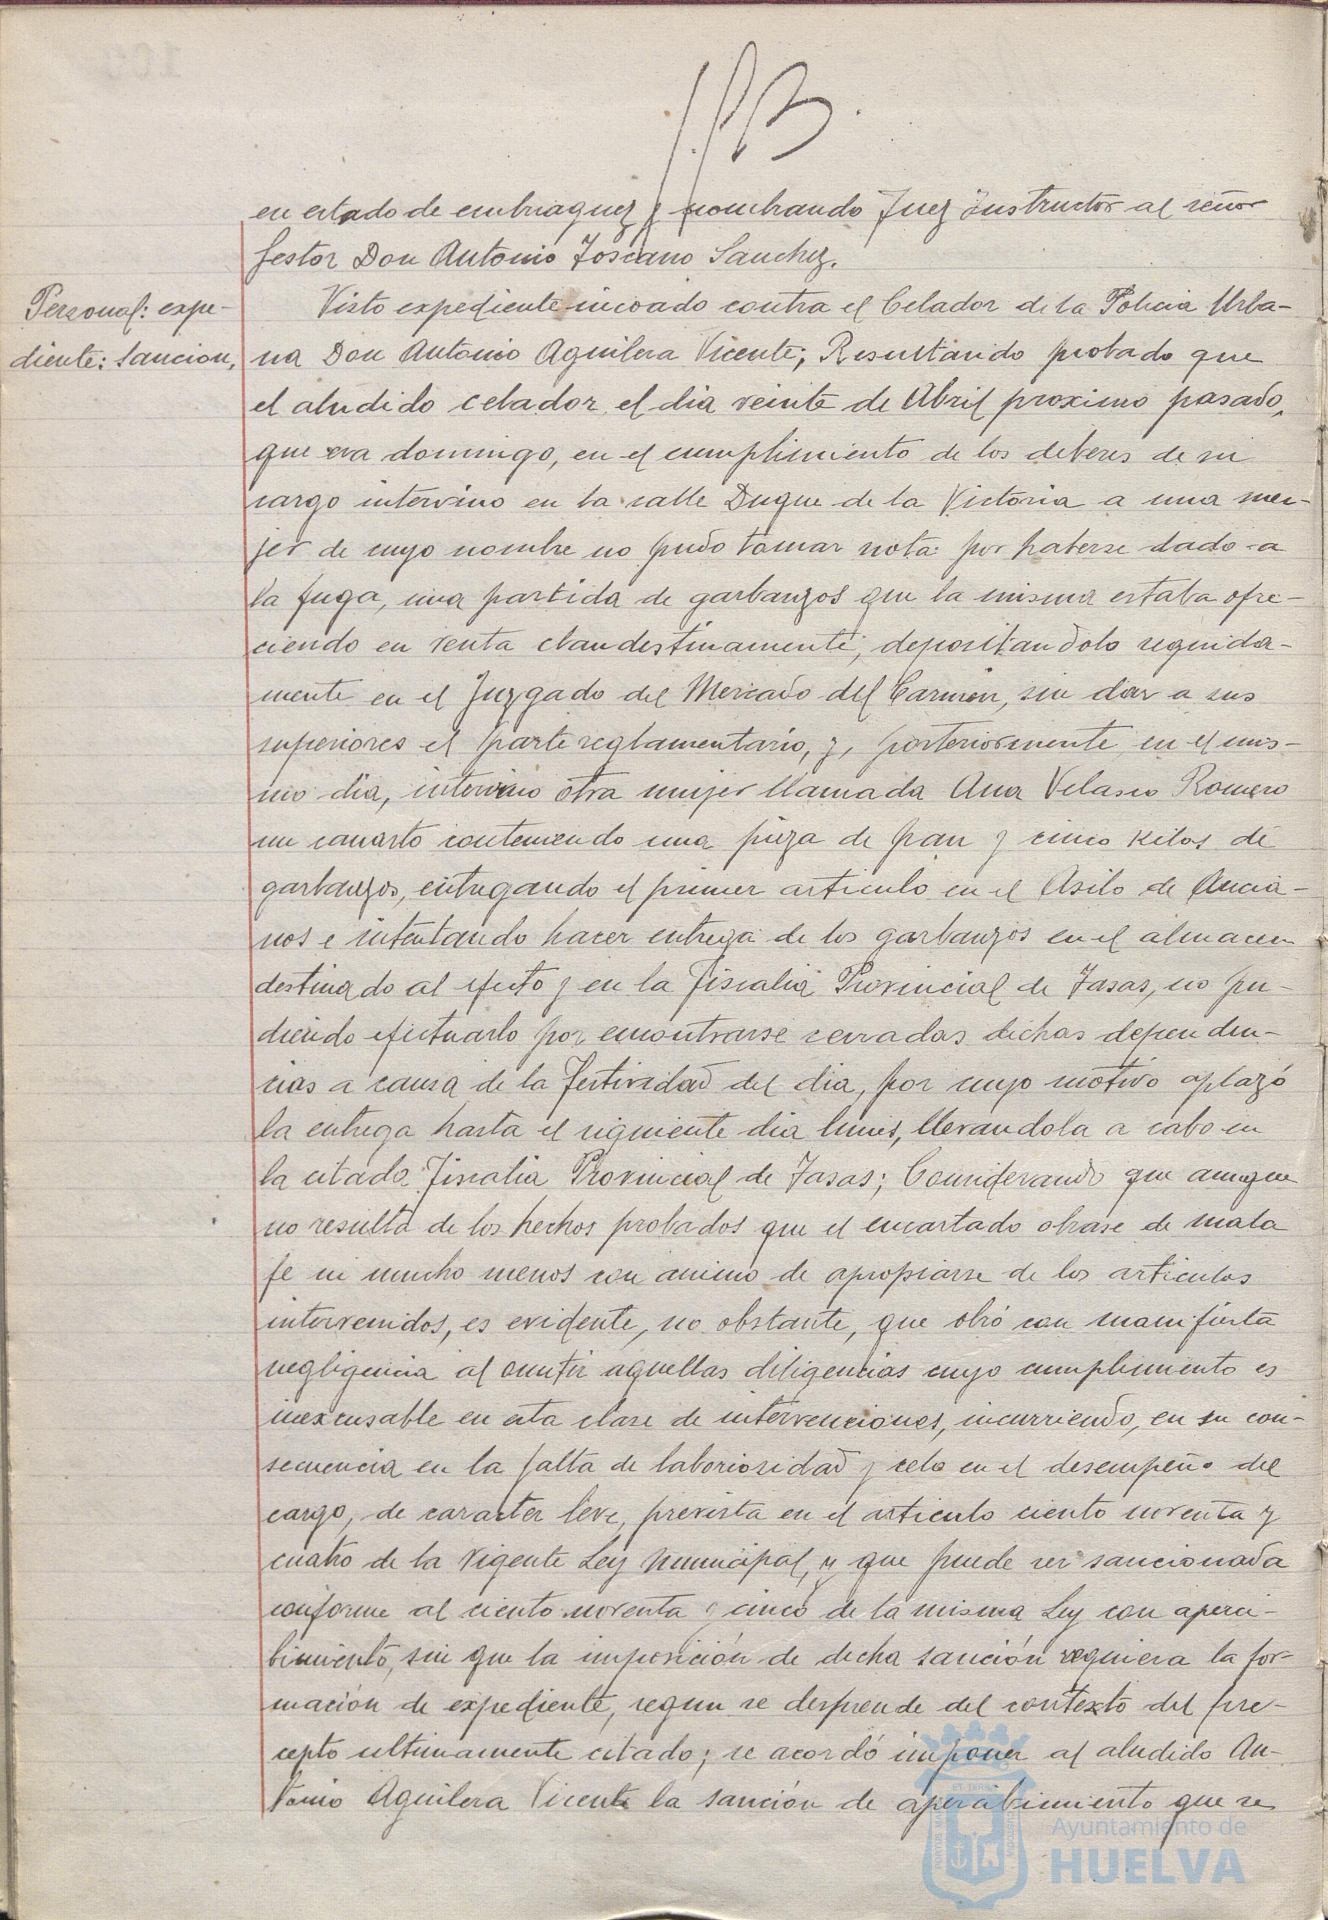 en estado de embriaguez y nombrando Juez Instructor al señor
Gestor Don Antonio Toscano Sanchez.
Personal: expe-
diente: Sancion,
Visto expediente incoado contra el Celador de la Policia Urba-
na Don Antonio Aguilera Vicente; Resultando probado que
el aludido celador, el dia veinte de Abril proximo pasado,
que era domingo, en el cumplimiento de los deberes de su
cargo intervino en la calle Duque de la Victoria a una mu-
jer de cuyo nombre no pudo tomar nota por haberse dado a
la fuga, una partida de garbanzos que la misma estaba ofre-
ciendo en venta clandestinamente, depositandolo seguida-
mente en el Juzgado del Mercado del Carmen, sin dar a sus
superiores el parte reglamentario, y, posteriormente, en el mis-
mo dia, intervino otra mujer llamada Ana Velasco Romero
un canasto conteniendo una pieza de pan y cinco kilos de
garbanzos, entregando el primer articulo en el Asilo de Ancia-
nos e intentando hacer entrega de los garbanzos en el almacen
destinado al efecto y en la Fiscalia Provincial de Tasas, no pu-
diendo efectuarlo por encontrarse cerradas dichas dependen-
cias a causa de la festividad del dia, por cuyo motivo aplazó
la entrega hasta el siguiente dia lunes, llevandola a cabo en
la citada Fiscalia Provincial de Tasas; Considerando que aunque
no resulta de los hechos probados que el encartado obrase de mala
fe ni mucho menos con animo de apropiarse de los articulos
intervenidos, es evidente, no obstante, que obró con manifiesta
negligencia al omitir aquellas diligencias cuyo cumplimiento es
inexcusable en esta clase de intervenciones, incurriendo, en su con-
secuencia en la falta de laboriosidad y celo en el desempeño del
cargo, de caracter leve, prevista en el articulo ciento noventa y
cuatro de la vigente Ley Municipal, y que puede ser sancionada
conforme al ciento noventa y cinco de la misma Ley con aperci-
bimiento, sin que la imposición de dicha sanción requiera la for-
mación de expediente, segun se desprende del contexto del pre-
cepto ultimamente citado; se acordó imponer al aludido An-
tonio Aguilera Vicente la sanción de apercibimiento que se
Ayuntamiento de
HUELVA